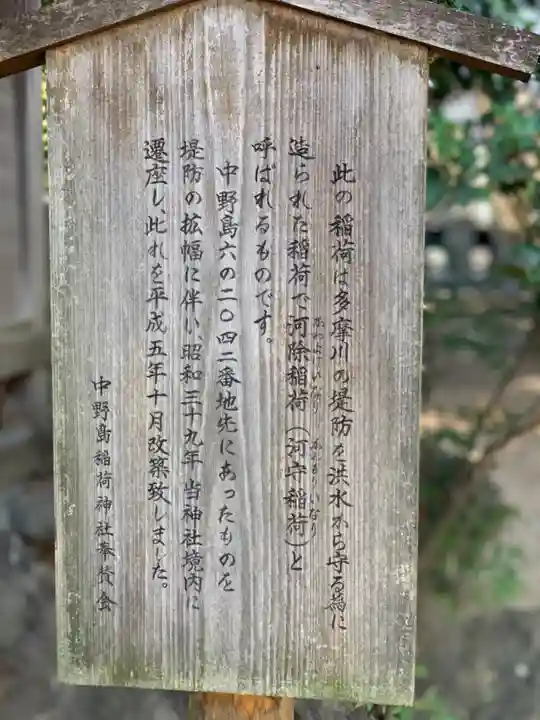 此の稲荷は多摩川の堤防を洪水から守る為に
造られた稲荷で河除稲荷（河守稲荷）と
かわよけいなり　かわもりいなり
呼ばれるものです。
中野島六の二〇四二番地先にあったものを
堤防の拡幅に伴い、昭和三十九年当神社境内に
遷座し、此れを平成五年十月改築致しました。
中野島稲荷神社奉賛会